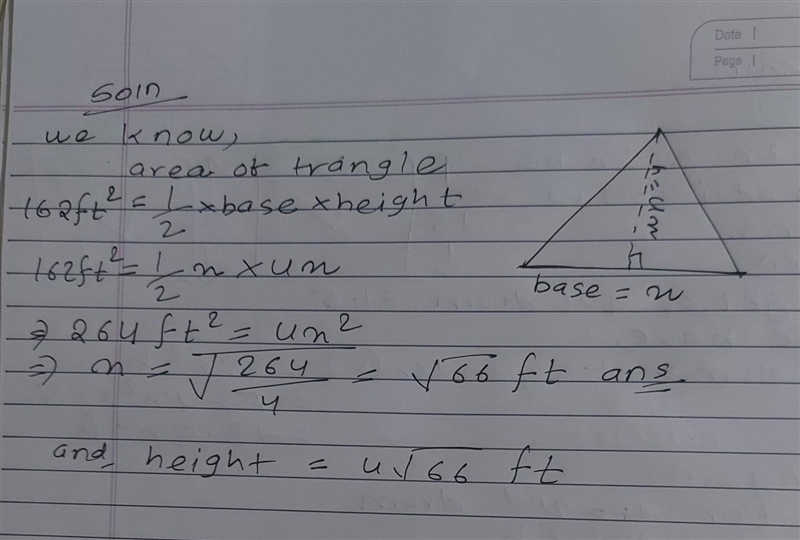 Date
Page
Soln
we know,
area of trangle
162ft² = 1/2 × base × height
162ft² = 1/2 x × 4x
⇒ 264 ft² = 4x²
⇒ x = √264/4 = √66 ft ans
and, height = 4√66 ft
h=4x
base = x